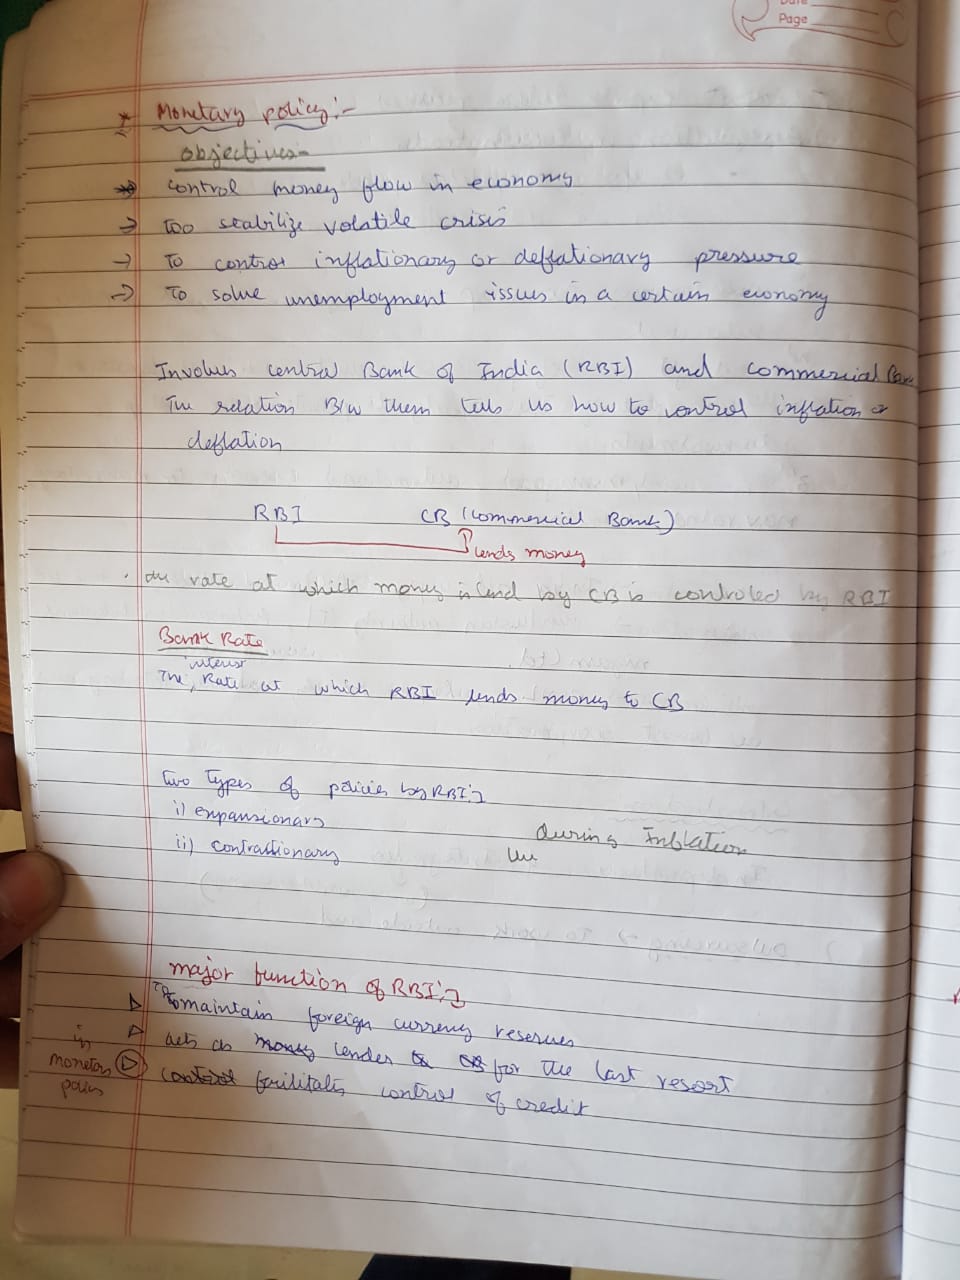 Date
Page
* Monetary policy:-
objectives-
→ control money flow in economy
→ too stabilize volatile crisis
→ To control inflationary or deflationary pressure
→ To solve unemployment issues in a certain economy
Involves central Bank of India (RBI) and commercial Bank
The relation B/w them tells us how to control inflation or
deflation
RBI CB (commercial Bank)
lends money
. the rate at which money is lend by CB is controled by RBI
Bank Rate
interest
The, Rate at which RBI lends money to CB
Two types of policies by RBI:-
i) expansionary
ii) contractionary
During Inflation
the
major function of RBI:-
▷ To maintain foreign currency reserves
▷ acts as money lender for the last resort
in monetary policy ▷ control facilitates control of credit